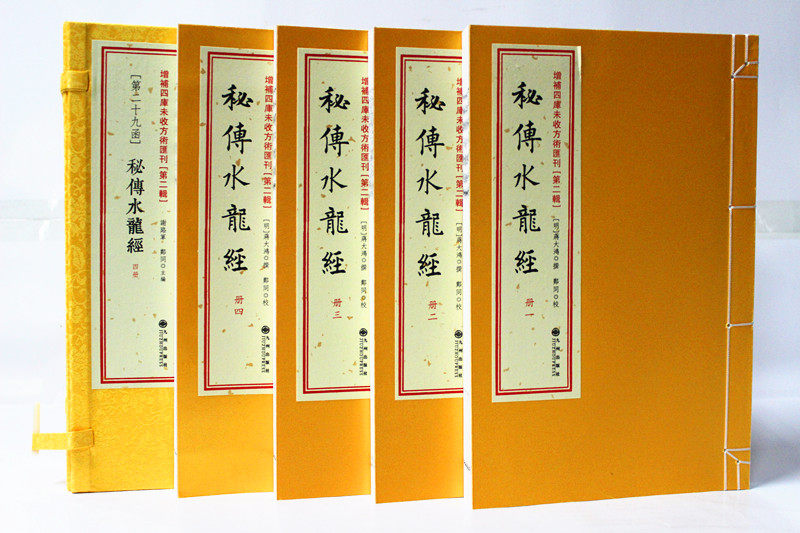 增補四庫未收方術匯刊[第二輯]
秘傳水龍經
[明]蔣大鴻◎撰 鄭同◎校
册一
九州出版社
JIUZHOUPRESS
增補四庫未收方術匯刊[第二輯]
秘傳水龍經
[明]蔣大鴻◎撰 鄭同◎校
册二
九州出版社
JIUZHOUPRESS
增補四庫未收方術匯刊[第二輯]
秘傳水龍經
[明]蔣大鴻◎撰 鄭同◎校
册三
九州出版社
JIUZHOUPRESS
增補四庫未收方術匯刊[第二輯]
秘傳水龍經
[明]蔣大鴻◎撰 鄭同◎校
册四
九州出版社
JIUZHOUPRESS
[第二十九函]
秘傳水龍經
謝路軍 鄭同◎主編
四册
九州出版社
JIUZHOUPRESS